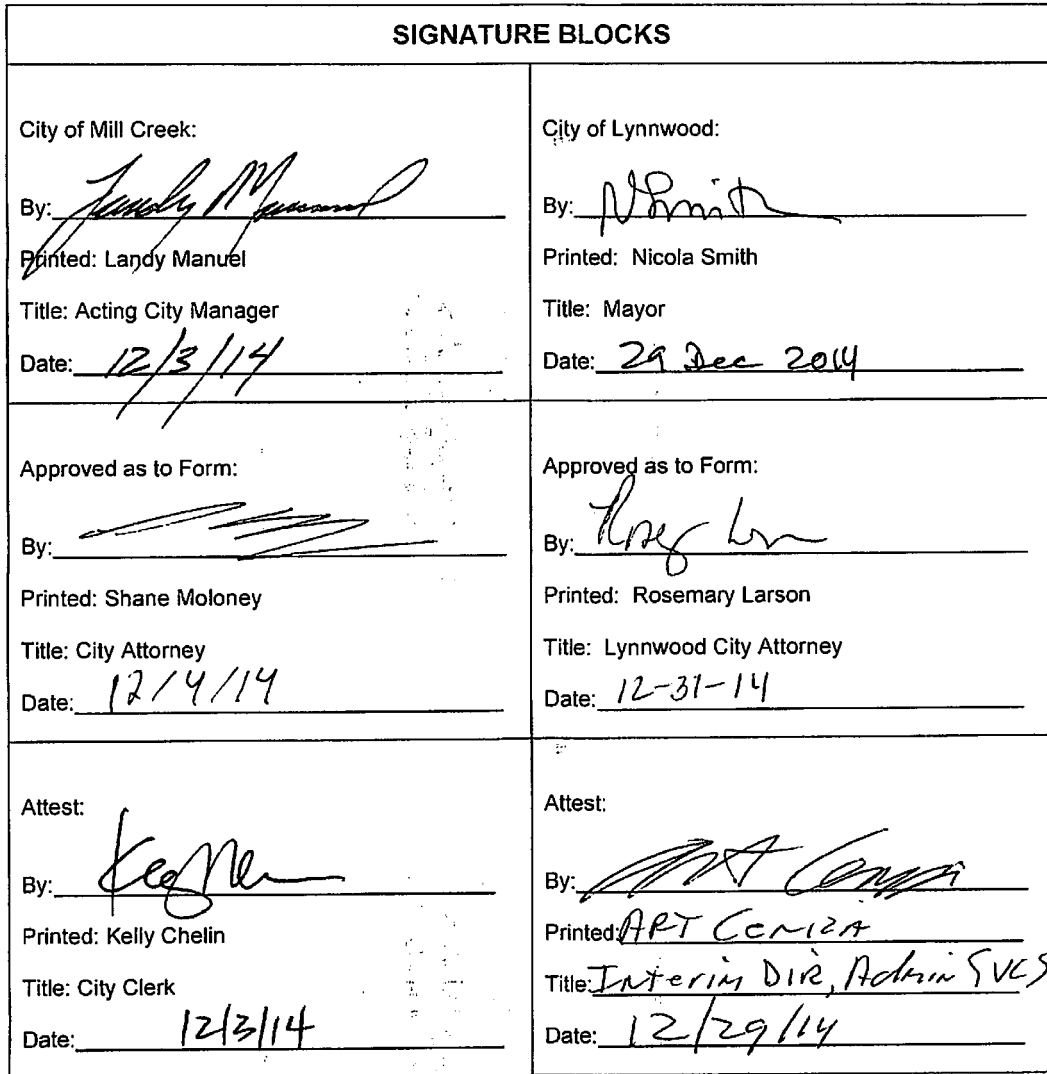 SIGNATURE BLOCKS
City of Mill Creek:
By: Landy Manuel
Printed: Landy Manuel
Title: Acting City Manager
Date: 12/3/14
City of Lynnwood:
By: NSmith
Printed: Nicola Smith
Title: Mayor
Date: 29 Dec 2014
Approved as to Form:
By:
Printed: Shane Moloney
Title: City Attorney
Date: 12/4/14
Approved as to Form:
By:
Printed: Rosemary Larson
Title: Lynnwood City Attorney
Date: 12-31-14
Attest:
By:
Printed: Kelly Chelin
Title: City Clerk
Date: 12/3/14
Attest:
By: Art Ceniza
Printed: ART CENIZA
Title: Interim DIR, Admin SVCS
Date: 12/29/14